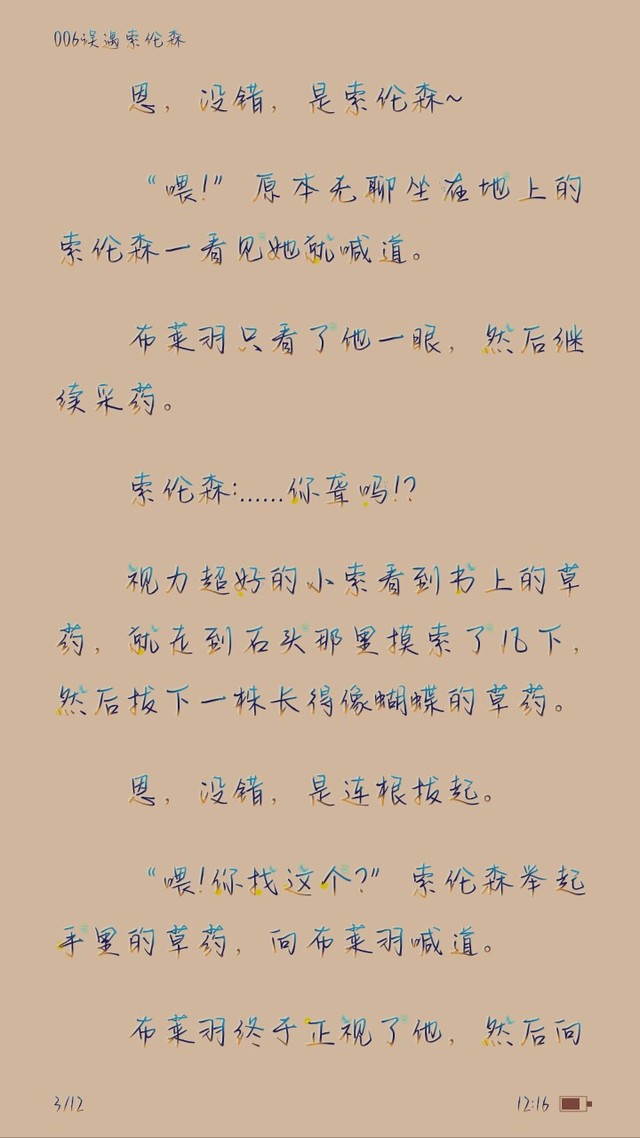 006误遇索伦森
恩，没错，是索伦森~
“喂!”原本无聊坐在地上的
索伦森一看见她就喊道。
布莱羽只看了他一眼，然后继
续采药。
索伦森:......你聋吗!?
视力超好的小索看到书上的草
药，就走到石头那里摸索了几下，
然后拔下一株长得像蝴蝶的草药。
恩，没错，是连根拔起。
“喂!你找这个?”索伦森举起
手里的草药，向布莱羽喊道。
布莱羽终于正视了他，然后向
3/12
12:16